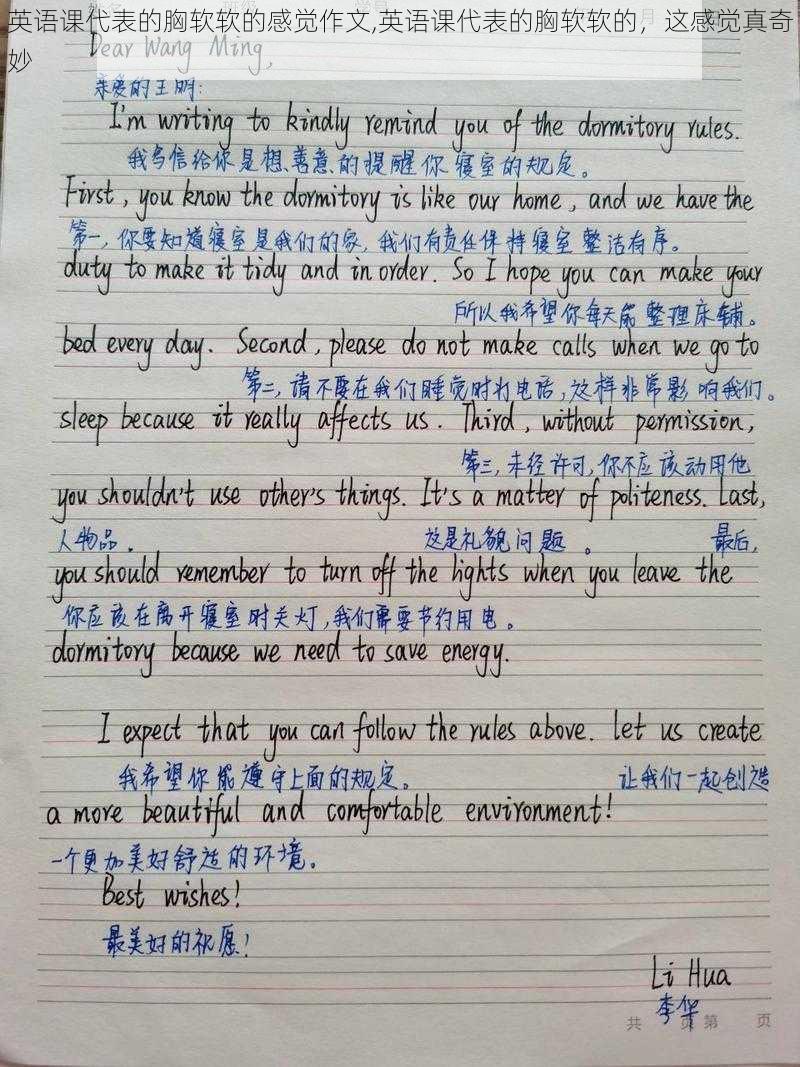 英语课代表的胸软软的感觉作文,英语课代表的胸软软的，这感觉真奇
妙
Dear Wang Ming,
亲爱的王明:
I'm writing to kindly remind you of the dormitory rules.
我写信给你是想善意的提醒你寝室的规定。
First, you know the dormitory is like our home, and we have the
第一,你要知道寝室是我们的家,我们有责任保持寝室整洁有序。
duty to make it tidy and in order. So I hope you can make your
所以我希望你每天能整理床铺。
bed every day. Second, please do not make calls when we go to
第二,请不要在我们睡觉时打电话,这样非常影响我们。
sleep because it really affects us. Third, without permission,
第三,未经许可,你不应该动用他
you shouldn't use other's things. It's a matter of politeness. Last,
人物品。 这是礼貌问题。 最后,
you should remember to turn off the lights when you leave the
你应该在离开寝室时关灯,我们需要节约用电。
dormitory because we need to save energy.
I expect that you can follow the rules above. Let us create
我希望你能遵守上面的规定。 让我们一起创造
a more beautiful and comfortable environment!
一个更加美好舒适的环境。
Best wishes!
最美好的祝愿!
Li Hua
李华
共 页 第 页